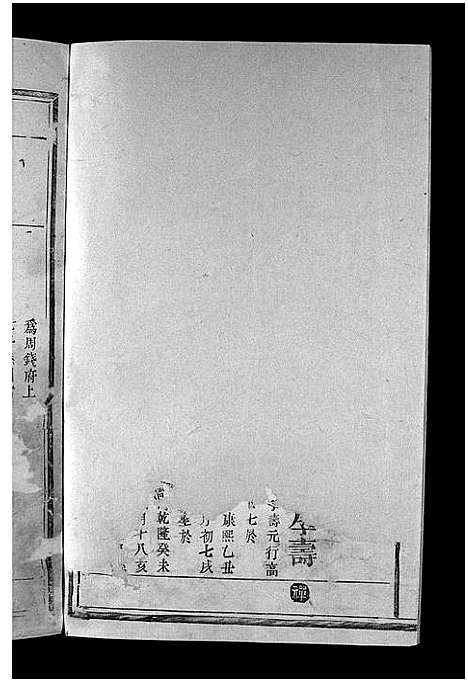 壽
壽元行高
七於
康熙乙丑
初七戌
於
乾隆癸未
月十八亥
爲周錢府上